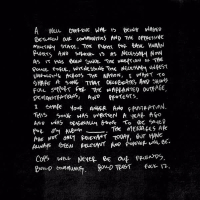 A WELL
WAR IS BEING WAGED
BETWEEN OUR COMMUNITIES AND THE OPPRESSIVE
MILITARY STATE. THE FIGHT FOR BASIC HUMAN
RIGHTS AND IS AS NECESSARY NOW
AS IT HAS BEEN SINCE THE INCEPTION OF THE
POLICE FORCE. WITNESSING THE NECESSARY UNREST
UNFOLDING ACROSS THE NATION, I WANT TO
SHARE A SONG THAT CELEBRATES AND SHOWS
FULL SUPPORT FOR THE WARRANTED OUTRAGE,
DEMONSTRATIONS, AND PROTESTS.
I SHARE YOUR ANGER AND FRUSTRATION.
THIS SONG WAS WRITTEN A YEAR AGO
AND WAS ORIGINALLY GOING TO BE SAVED
FOR MY ALBUM ____. THE MESSAGES ARE
ARE NOT ONLY RELEVANT TODAY, BUT HAVE
ALWAYS BEEN RELEVANT AND FOREVER WILL BE.
COPS WILL NEVER BE OUR FRIENDS.
BUILD COMMUNITY. BUILD TRUST. FUCK 12.